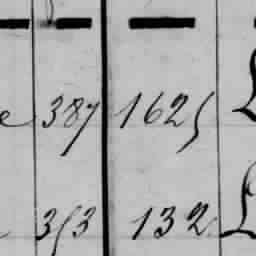 e 387 1625 L
353 132 L